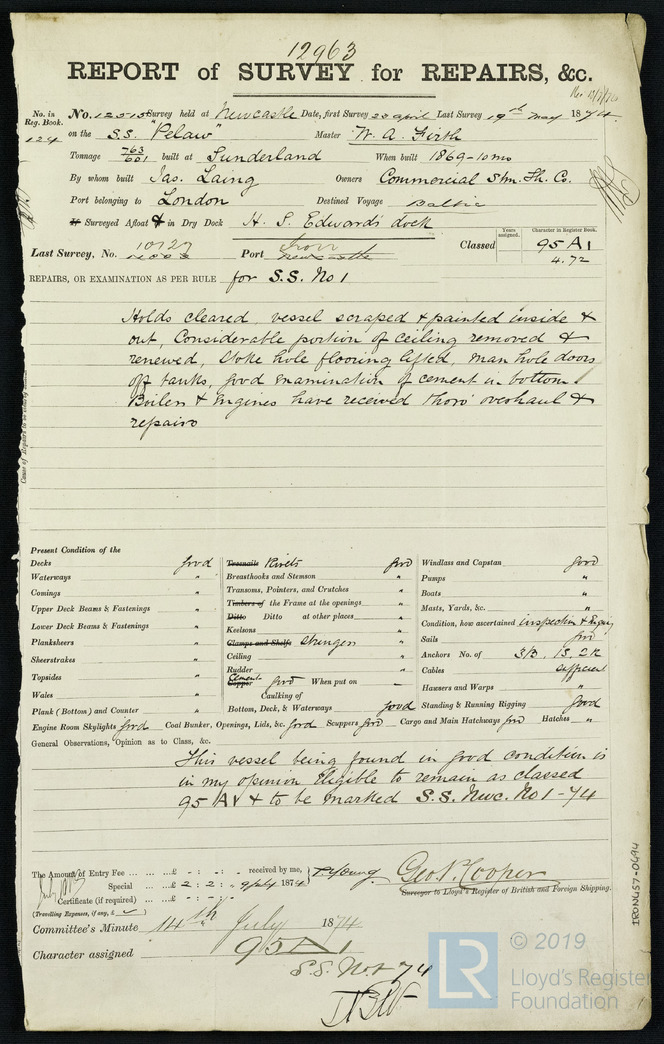 12963
REPORT of SURVEY for REPAIRS, &c.
No. in Reg. Book. No. 12515 Survey held at Newcastle Date, first Survey 23 April Last Survey 19th May 1874
124 on the S.S. "Pelaw" Master W. A. Firth
Tonnage 763/601 built at Sunderland When built 1869-10mo
By whom built Jas. Laing Owners Commercial Stm. Sh. Co.
Port belonging to London Destined Voyage Baltic
If Surveyed Afloat or in Dry Dock H. S. Edwards dock
Years assigned. Character in Register Book.
Last Survey, No. 10127 Port Iron Newcastle Classed 95 A1
4.72
REPAIRS, OR EXAMINATION AS PER RULE for S.S. No 1
Holds cleared, vessel scraped & painted inside &
out, Considerable portion of ceiling removed &
renewed, Stoke hole flooring lifted, man hole doors
off tanks, good examination of cement in bottom.
Boilers & Engines have received thoro' overhaul &
repairs
Present Condition of the
Decks good Treenails Rivets good Windlass and Capstan good
Waterways " Breasthooks and Stemson " Pumps "
Comings " Transoms, Pointers, and Crutches " Boats "
Upper Deck Beams & Fastenings " Timbers of the Frame at the openings " Masts, Yards, &c. "
Lower Deck Beams & Fastenings " Ditto Ditto at other places " Condition, how ascertained inspection & Enquiry
Planksheers " Keelsons " Sails good
Sheerstrakes " Clamps and Shelfs Stringers " Anchors No. of 3/B. 1S. 2K
Topsides " Ceiling " Cables sufficient
Rudder "
Wales " Copper Cement good When put on – Hawsers and Warps "
Plank (Bottom) and Counter " Caulking of Bottom, Deck, & Waterways good Standing & Running Rigging good
Engine Room Skylights good Coal Bunker, Openings, Lids, &c. good Scuppers good Cargo and Main Hatchways good Hatches "
General Observations, Opinion as to Class, &c.
This vessel being found in good condition is
in my opinion Eligible to remain as classed
95 A1 & to be marked S.S. Nwc. No 1-74
The Amount of Entry Fee ... £ - : - : - received by me,
Special ... £ 2 : 2 : 1874 T. Young Geo. P. Cooper
Certificate (if required) ... £ - : - : - Surveyor to Lloyd's Register of British and Foreign Shipping.
(Travelling Expenses, if any, £ )
Committee's Minute 14th July 1874
Character assigned 95 A1
S.S. No. 1 74
IRON457-0494
LR © 2019
Lloyd's Register
Foundation